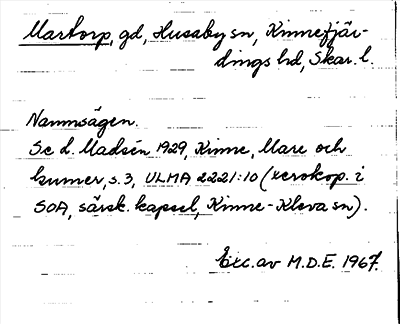 Martorp, gd, Husaby sn, Kinnefjär-
dings hd, Skar. l.
Namnsägen.
Se L. Madsén 1929, Kinne, Mare och
kumer, s. 3, ULMA 2221:10 (xerokop. i
SOA, särsk. kapsel, Kinne-Kleva sn).
Exc. av M.D.E. 1967.